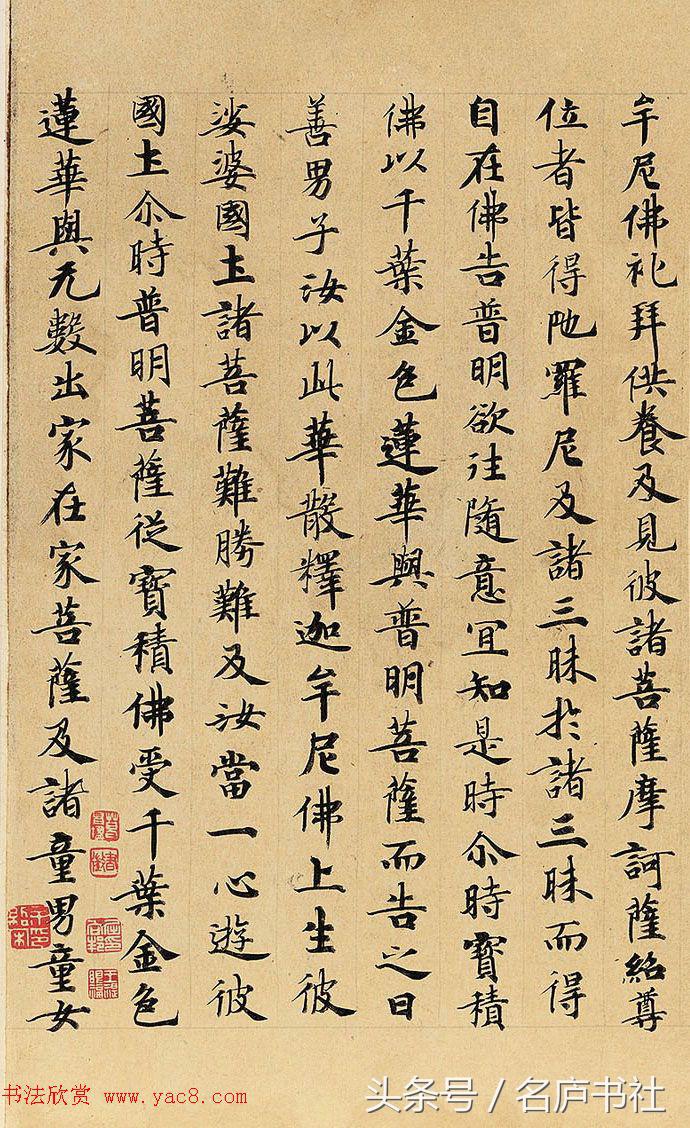 牟尼佛礼拜供養及見彼諸菩薩摩訶薩紹尊
位者皆得陁羅尼及諸三昧扵諸三昧而得
自在佛告普明欲往隨意宜知是時尒時寶積
佛以千葉金色蓮華與普明菩薩而告之曰
善男子汝以此華散釋迦牟尼佛上生彼
娑婆國土諸菩薩難勝難及汝當一心遊彼
國土尒時普明菩薩從寶積佛受千葉金色
蓮華與无數出家在家菩薩及諸童男童女
书法欣赏 www.yac8.com
头条号 / 名庐书社